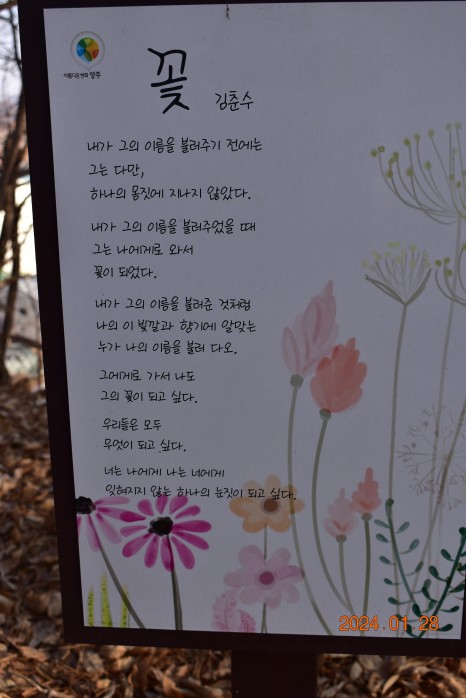 아름다운 변화 양주
꽃
김춘수
내가 그의 이름을 불러주기 전에는
그는 다만,
하나의 몸짓에 지나지 않았다.
내가 그의 이름을 불러주었을 때
그는 나에게로 와서
꽃이 되었다.
내가 그의 이름을 불러준 것처럼
나의 이 빛깔과 향기에 알맞는
누가 나의 이름을 불러 다오.
그에게로 가서 나도
그의 꽃이 되고 싶다.
우리들은 모두
무엇이 되고 싶다.
너는 나에게 나는 너에게
잊혀지지 않는 하나의 눈짓이 되고 싶다.
2024.01.28